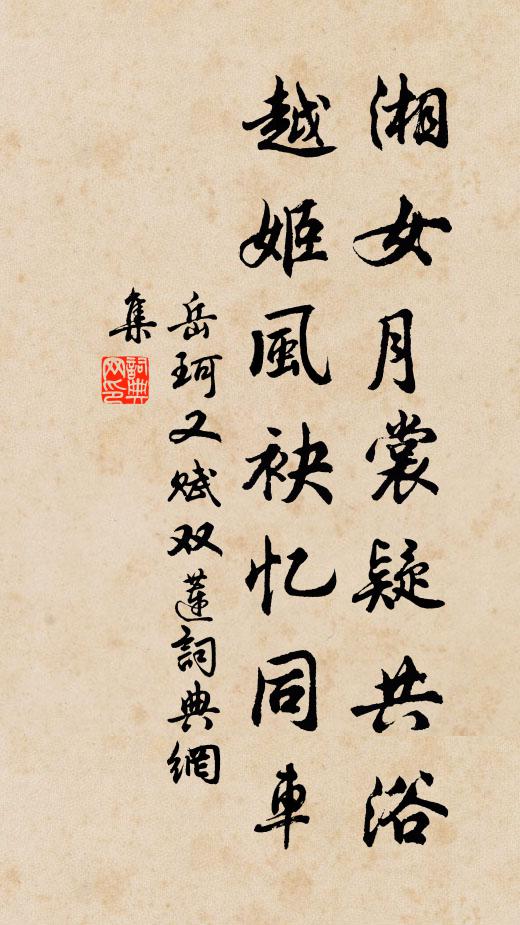 湘女月裳疑共浴
越姬風袂忆同車
岳珂又赋双蓮詞典網
集
詞典
网印